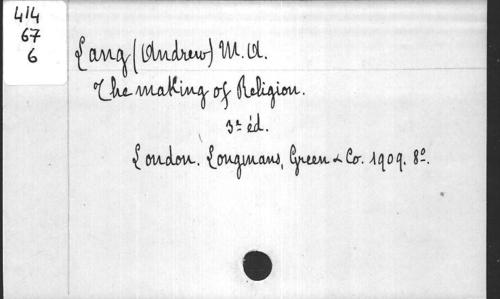 414
67
6
Lang (Andrew) M.A.
The making of Religion.
3ª éd.
London. Longmans, Green & Co. 1909. 8º.